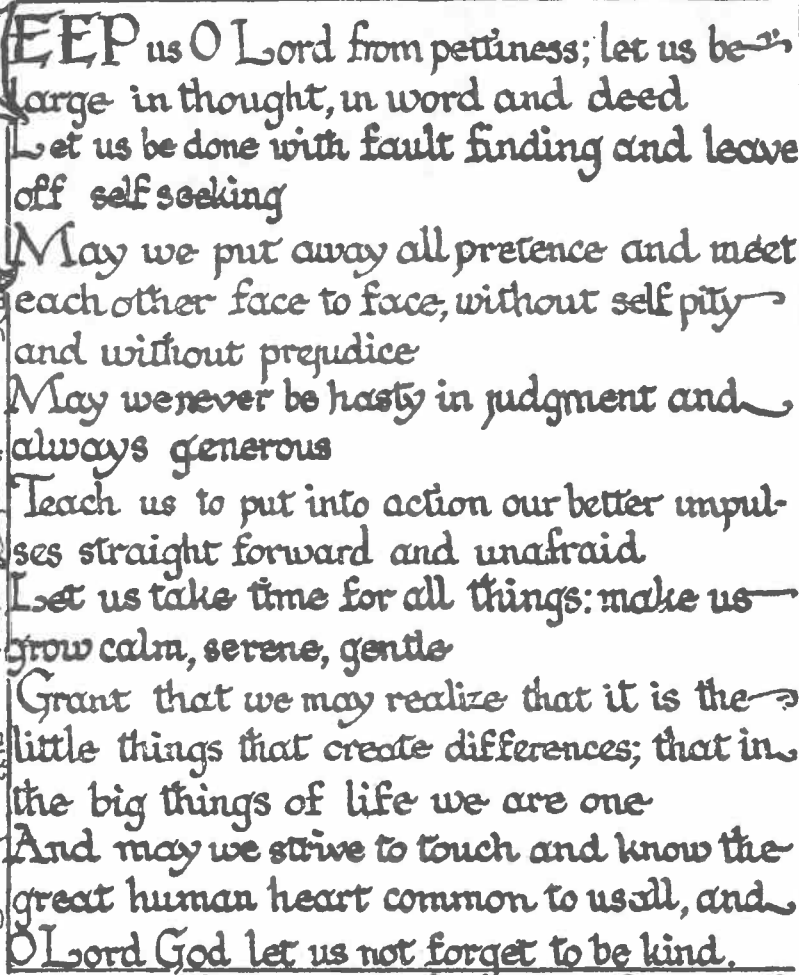 EEP us O Lord from pettiness; let us be
large in thought, in word and deed
Let us be done with fault finding and leave
off self seeking
May we put away all pretence and meet
each other face to face, without self pity
and without prejudice
May we never be hasty in judgment and
always generous
Teach us to put into action our better impul-
ses straight forward and unafraid
Let us take time for all things: make us
grow calm, serene, gentle
Grant that we may realize that it is the
little things that create differences; that in
the big things of life we are one
And may we strive to touch and know the
great human heart common to us all, and
O Lord God let us not forget to be kind.